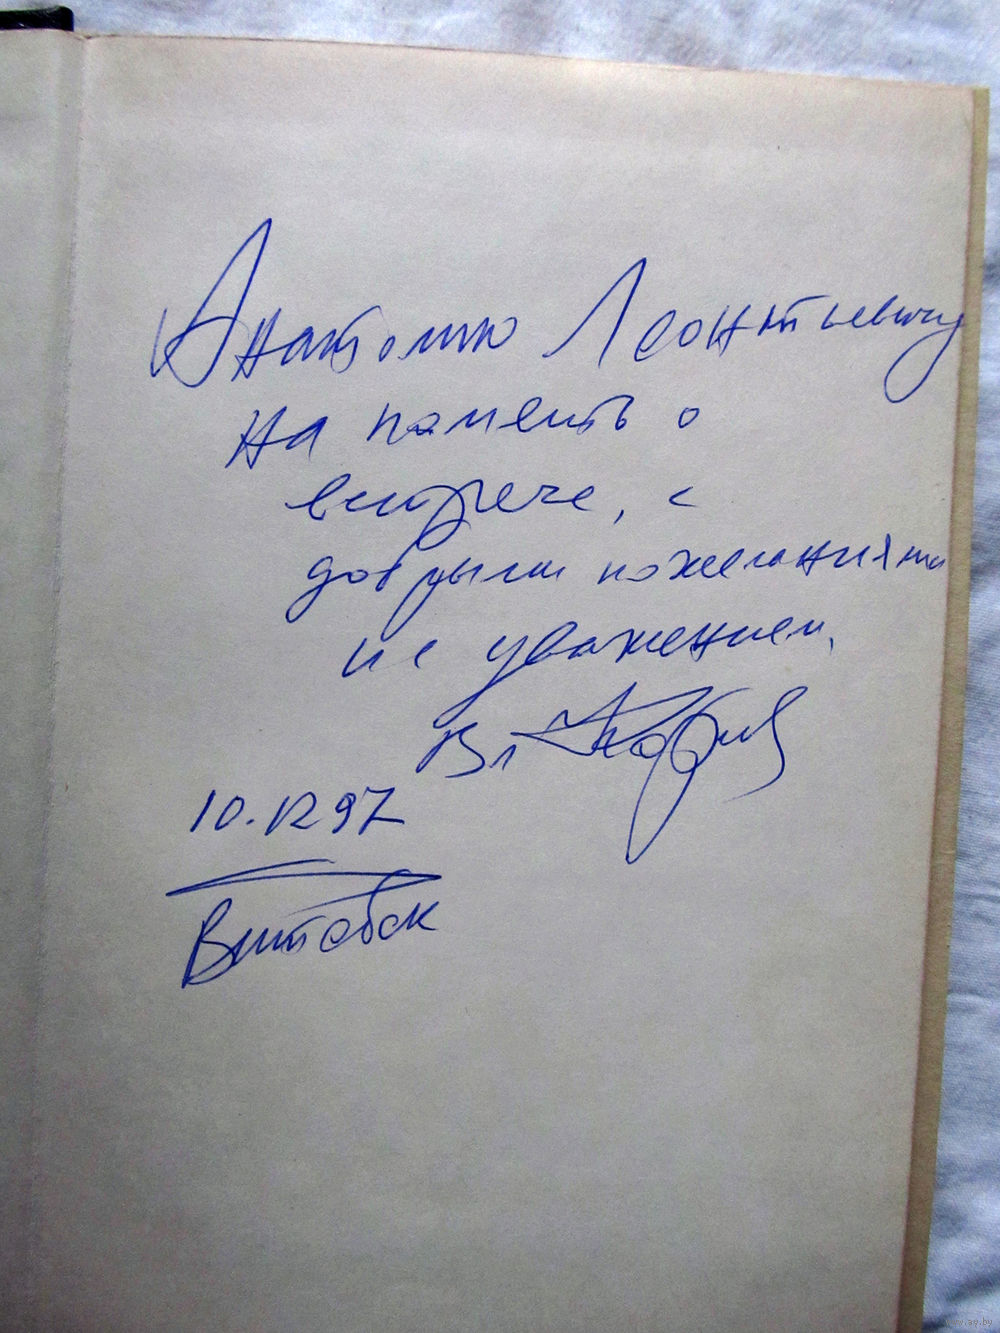 Анатолию Леонтьевичу
на память о
встрече, с
добрыми пожеланиями
и с уважением,
Вл
10.12 97
Витебск
www.ay.by